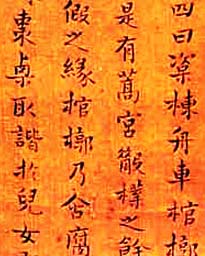 四曰梁棟舟車棺槨
是有蒿宮樸之餘
假之緣棺槨乃腐
棗取諧於兒女